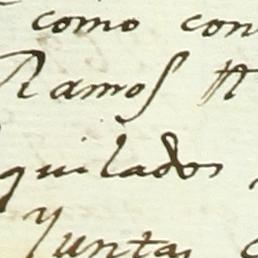 como con
Ramos
quilados
Juntas